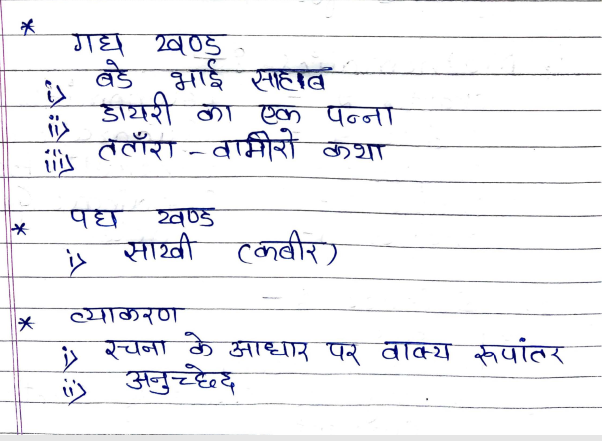 * गद्य खण्ड
i) बडे भाई साहाब
ii) डायरी का एक पन्ना
iii) तताँरा - वामीरो कथा
* पद्य खण्ड
i) साखी (कबीर)
* व्याकरण
i) रचना के आधार पर वाक्य रूपांतर
ii) अनुच्छेद